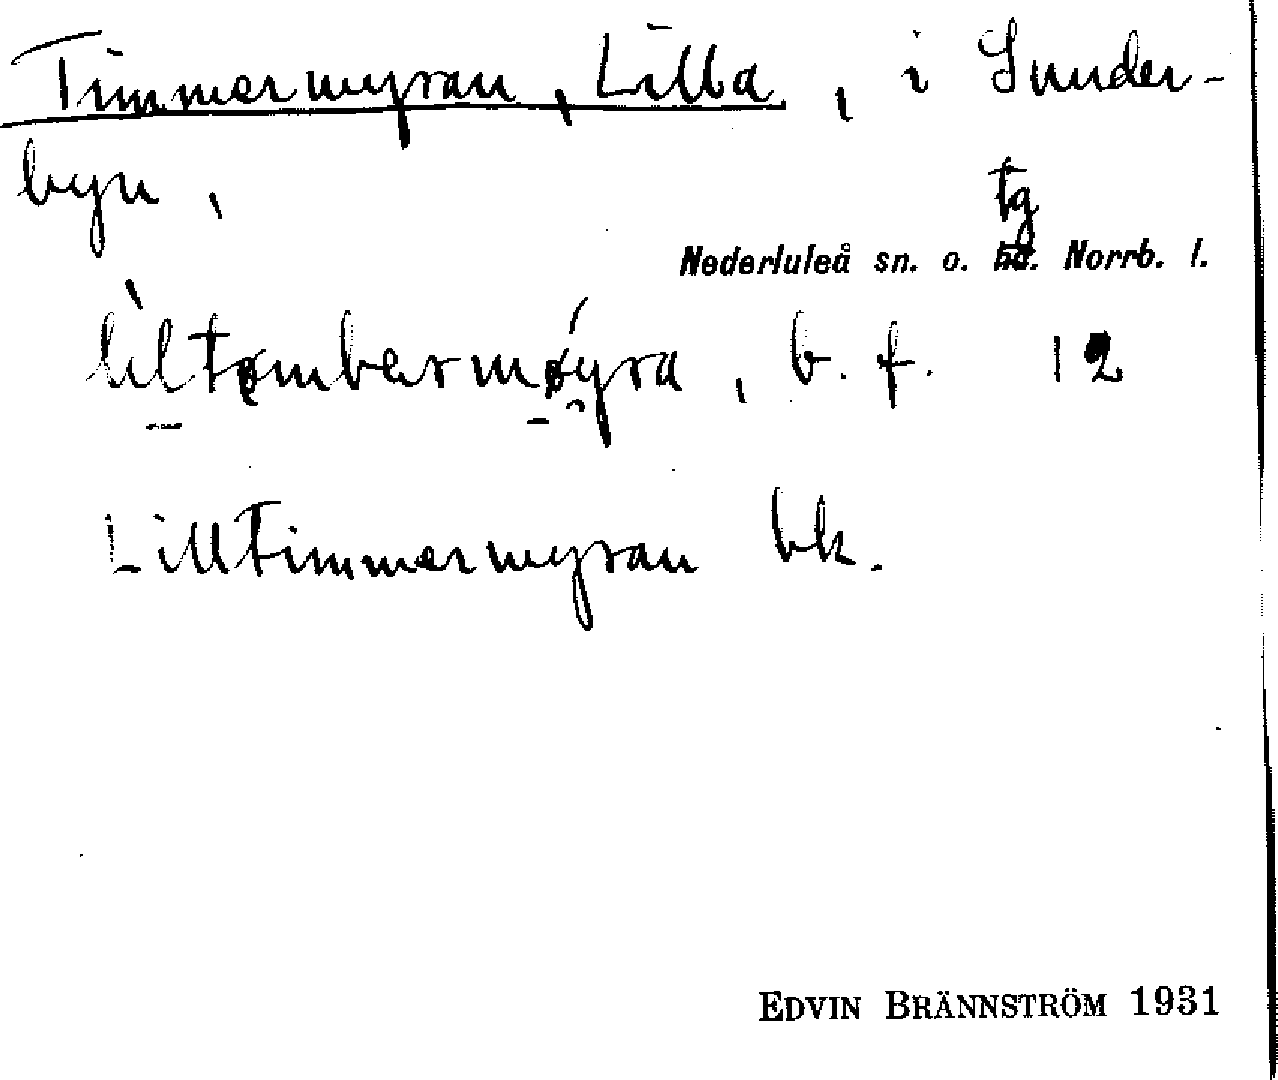 Timmermyran, Lilla, i Sunder-
byn,
tg
Nederluleå sn. o. hd. Norrb. l.
liltømbermøyra, b. f. 12
Lilltimmermyran bk.
EDVIN BRÄNNSTRÖM 1931